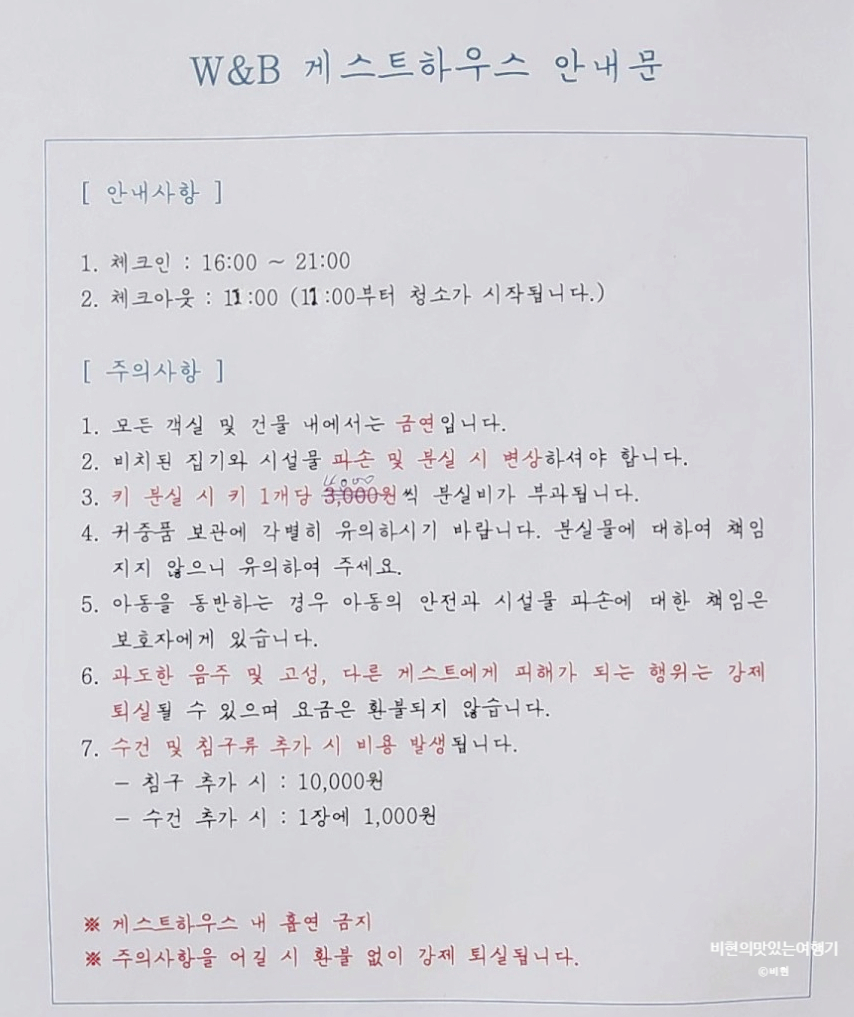 W&B 게스트하우스 안내문
[ 안내사항 ]
1. 체크인 : 16:00 ~ 21:00
2. 체크아웃 : 11:00 (11:00부터 청소가 시작됩니다.)
[ 주의사항 ]
1. 모든 객실 및 건물 내에서는 금연입니다.
2. 비치된 집기와 시설물 파손 및 분실 시 변상하셔야 합니다.
3. 키 분실 시 키 1개당 3,000원씩 분실비가 부과됩니다.
4. 귀중품 보관에 각별히 유의하시기 바랍니다. 분실물에 대하여 책임
지지 않으니 유의하여 주세요.
5. 아동을 동반하는 경우 아동의 안전과 시설물 파손에 대한 책임은
보호자에게 있습니다.
6. 과도한 음주 및 고성, 다른 게스트에게 피해가 되는 행위는 강제
퇴실될 수 있으며 요금은 환불되지 않습니다.
7. 수건 및 침구류 추가 시 비용 발생됩니다.
- 침구 추가 시 : 10,000원
- 수건 추가 시 : 1장에 1,000원
※ 게스트하우스 내 흡연 금지
※ 주의사항을 어길 시 환불 없이 강제 퇴실됩니다.
비현의맛있는여행기
©비현